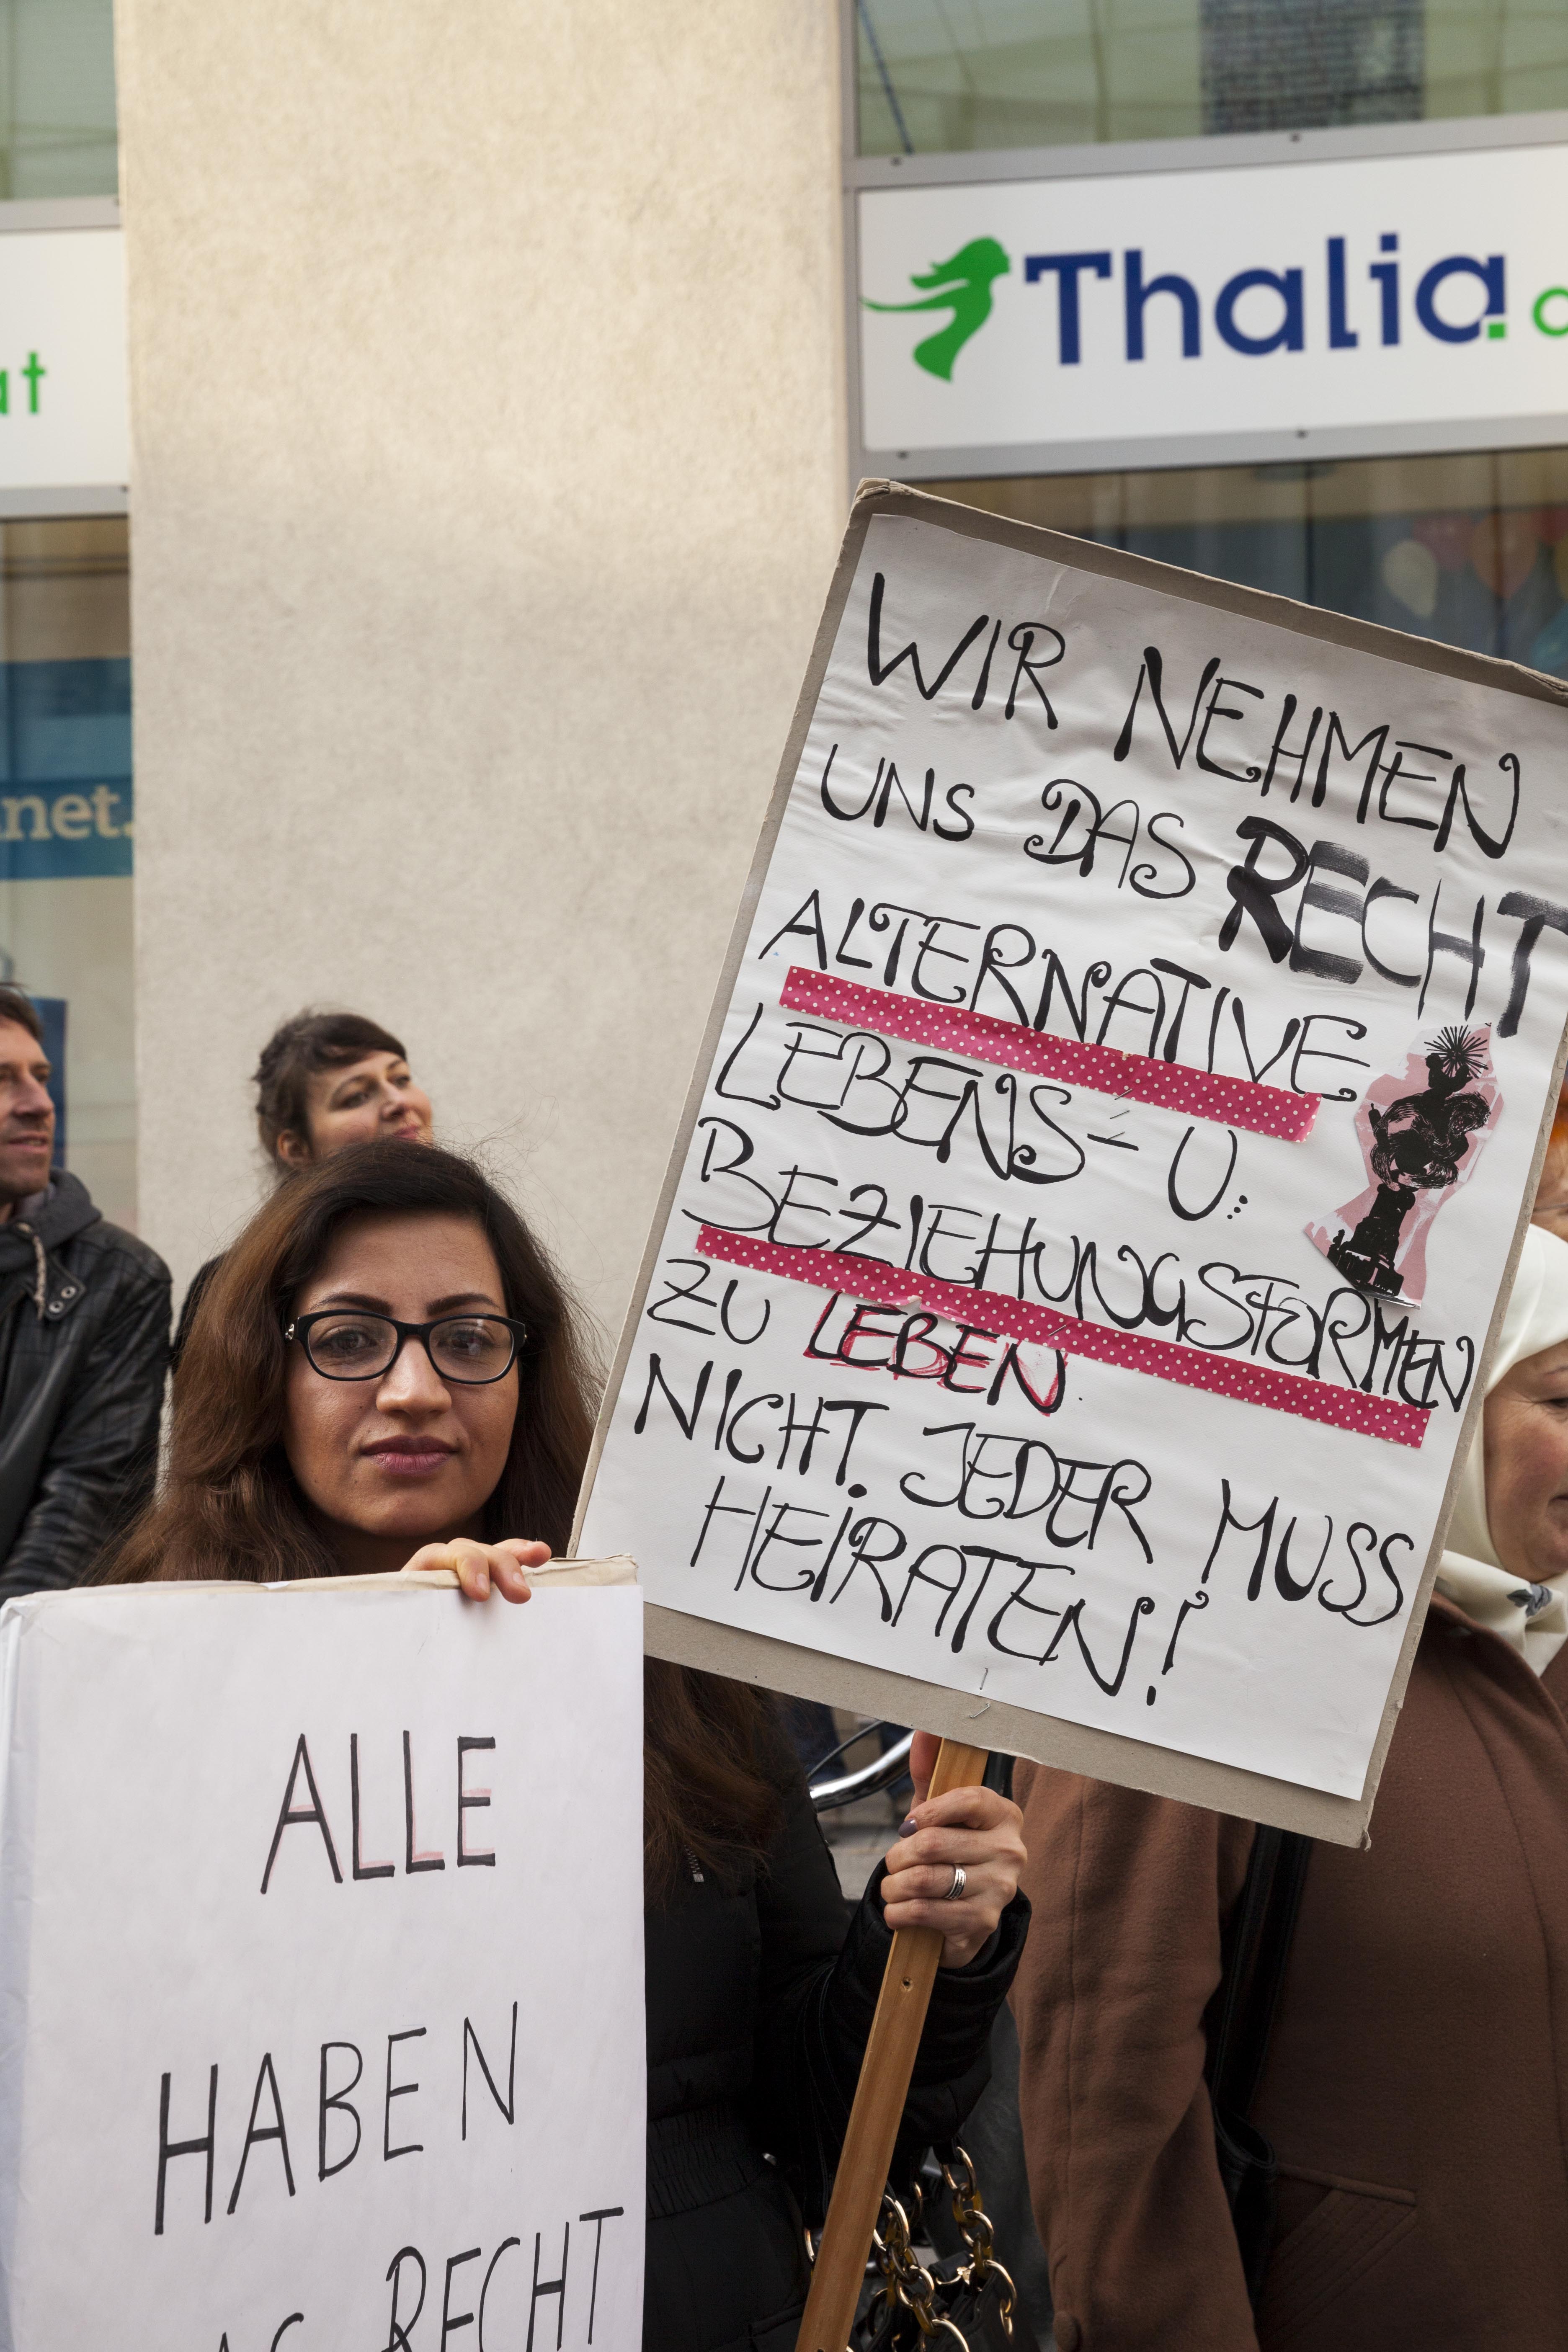 Thalia.
at
net.
WIR NEHMEN
UNS DAS RECHT
ALTERNATIVE
LEBENS- U.
BEZIEHUNGSFORMEN
ZU LEBEN.
NICHT JEDER MUSS
HEIRATEN!
ALLE
HABEN
RECHT